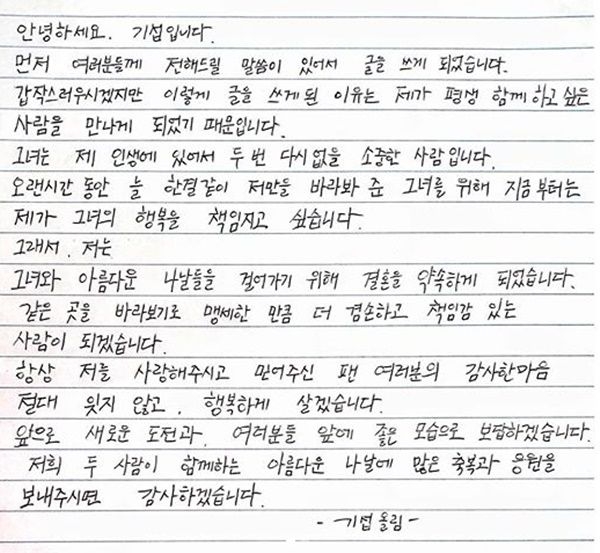 안녕하세요. 기섭입니다.
먼저 여러분들께 전해드릴 말씀이 있어서 글을 쓰게 되었습니다.
갑작스러우시겠지만 이렇게 글을 쓰게 된 이유는 제가 평생 함께 하고 싶은
사람을 만나게 되었기 때문입니다.
그녀는 제 인생에 있어서 두 번 다시 없을 소중한 사람입니다.
오랜시간 동안 늘 한결같이 저만을 바라봐 준 그녀를 위해 지금부터는
제가 그녀의 행복을 책임지고 싶습니다.
그래서, 저는
그녀와 아름다운 나날들을 걸어가기 위해 결혼을 약속하게 되었습니다.
같은 곳을 바라보기로 맹세한 만큼 더 겸손하고 책임감 있는
사람이 되겠습니다.
항상 저를 사랑해주시고 믿어주신 팬 여러분의 감사한마음
절대 잊지 않고, 행복하게 살겠습니다.
앞으로 새로운 도전과, 여러분들 앞에 좋은 모습으로 보답하겠습니다.
저희 두 사람이 함께하는 아름다운 나날에 많은 축복과 응원을
보내주시면 감사하겠습니다.
- 기섭 올림 -